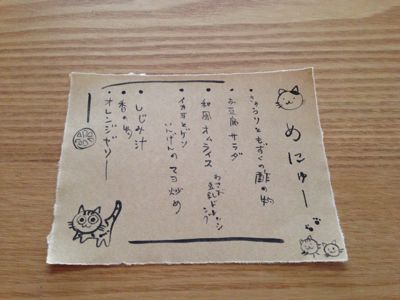 めにゅー
・きゅうりともずくの酢の物
・お豆腐サラダ
・和風オムライス
・イカゲソと
いんげんのマヨ炒め
・しじみ汁
・香の物
・オレンジゼリー